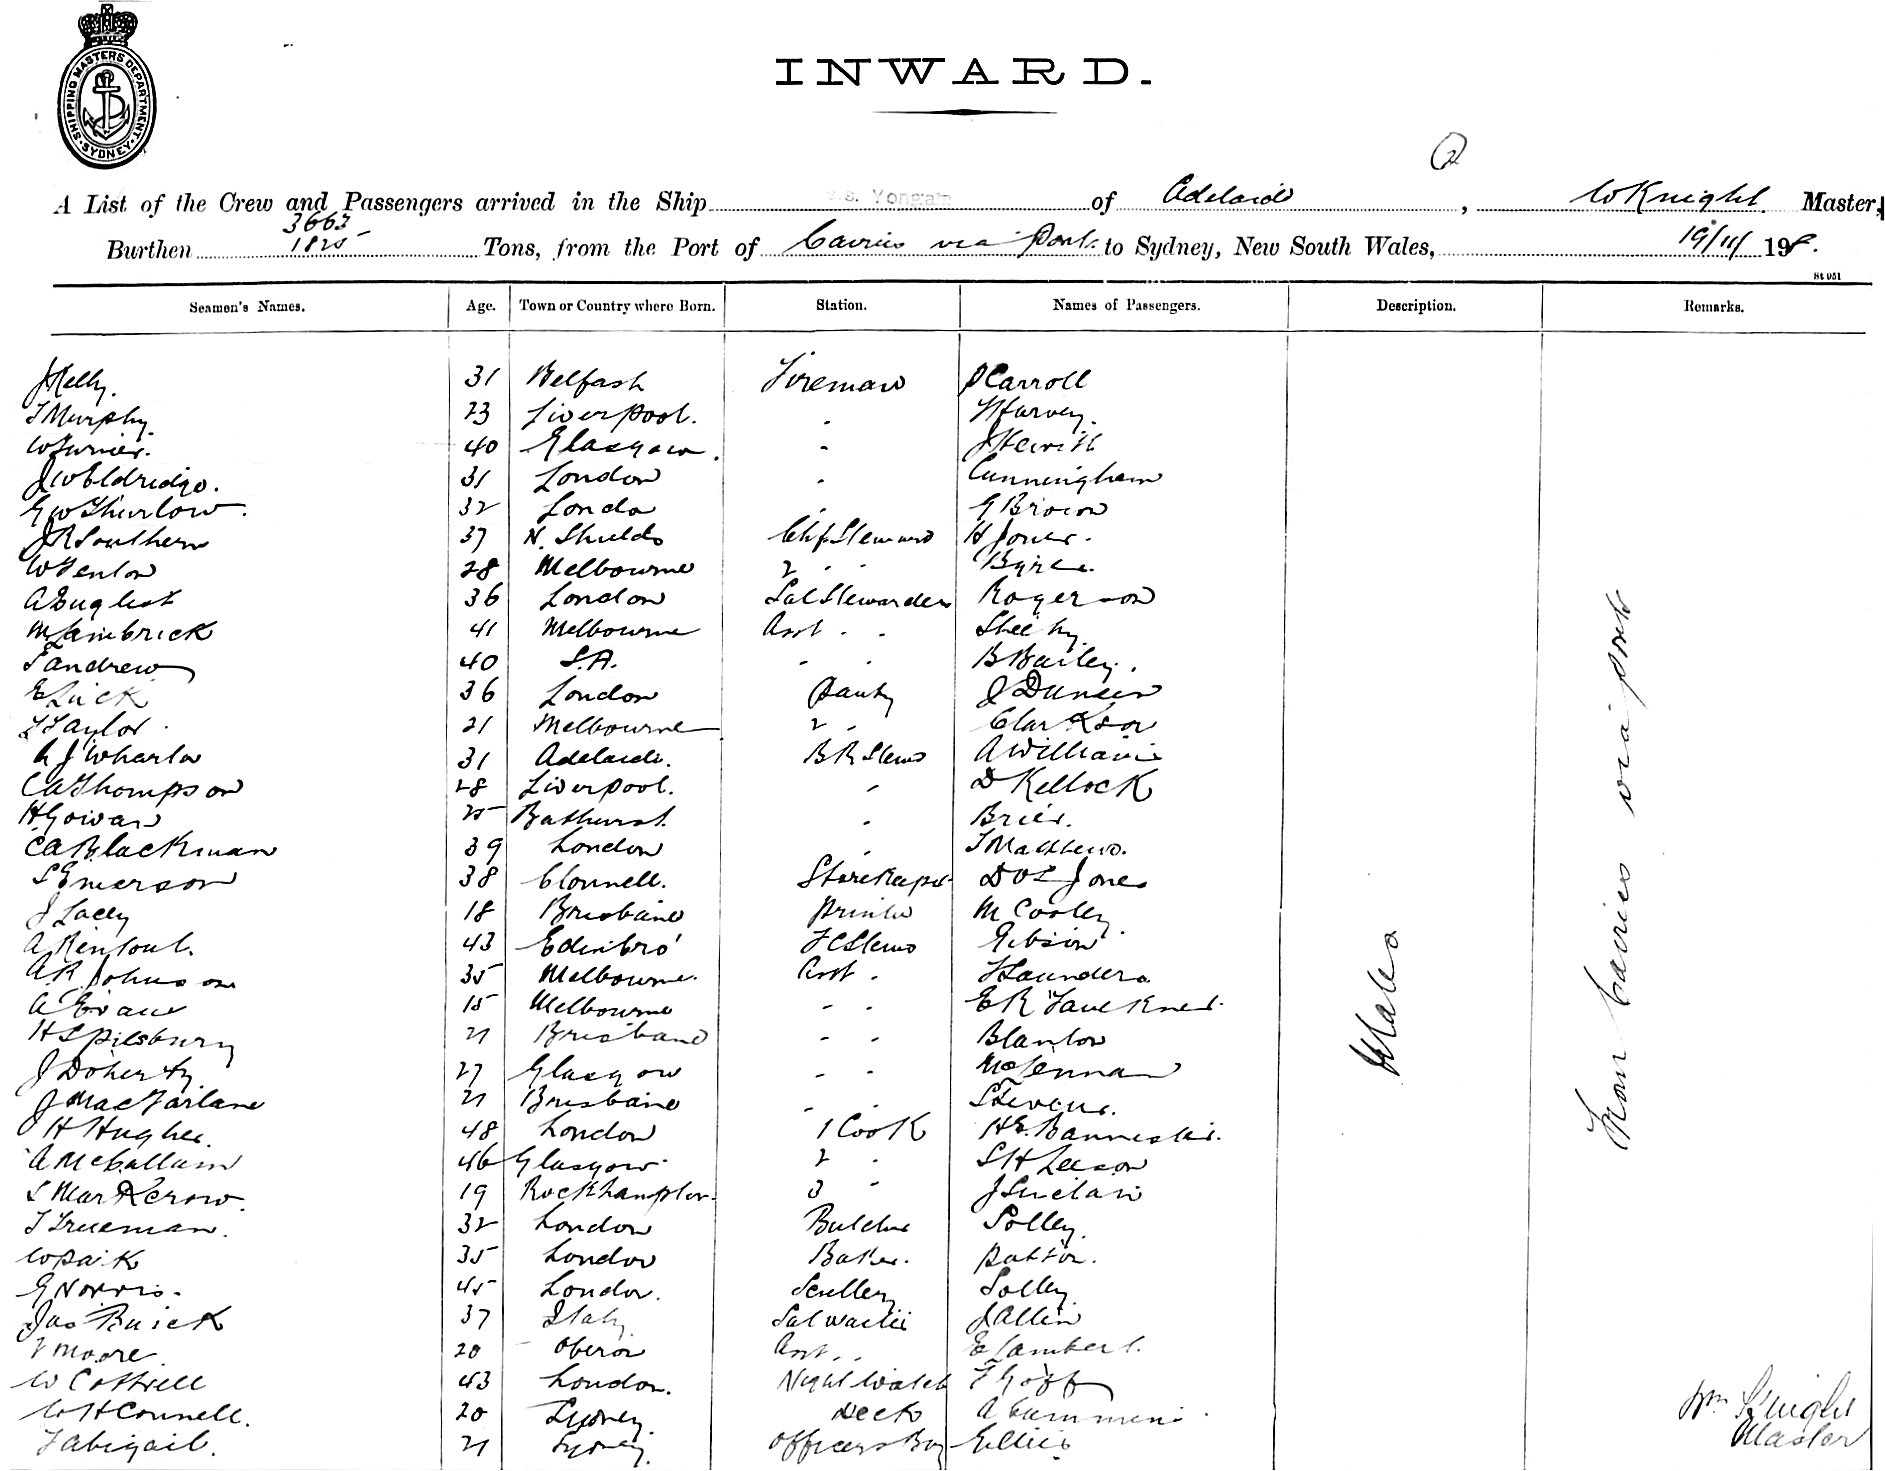 SHIPPING MASTERS DEPARTMENT. SYDNEY
INWARD.
2
A List of the Crew and Passengers arrived in the Ship S.S. Yongala of Adelaide, W Knight Master,
3663
Burthen 1825 Tons, from the Port of Cairns via Ports to Sydney, New South Wales, 19/11/ 198.
St 051
Seamen's Names. Age. Town or Country where Born. Station. Names of Passengers. Description. Remarks.
J Kelly. 31 Belfast Fireman P Carroll
T Murphy. 23 Liverpool. " Harvey.
W Turner. 40 Glasgow. " J Hewitt
J W Eldridge. 31 London " Cunningham
G W Thurlow. 32 London " G Brown
J R Southern 37 N. Shields Chf Steward H Jones.
W Fenton 28 Melbourne 2 " " Byrne.
A Englist 36 London Sal Stewardess Rogerson
M Lambrick 41 Melbourne Asst " " Sheehy.
S Andrew 40 S.A. " " B Bailey.
E Luck 36 London Pantry J Duncan
T Taylor. 21 Melbourne 2 " Clarkson
A J Wharton 31 Adelaide. B R Stewd A William
C A Thompson 28 Liverpool. " D Kellock
H Gowan 25 Bathurst. " Brier.
C A Blackman 39 London " T Matthews.
S Emerson 38 Clonnell. Storekeeper D O L Jones
J Lacey 18 Brisbane Printer M Cooley.
A Rentoul. 43 Edinbro' F C Stewd Gibson
A R Johnson 35 Melbourne. Asst " H Saunders
A Evans 15 Melbourne " " E R Faulkner.
H S Pilsbury 21 Brisbane " " Blanton
J Doherty 27 Glasgow " " McLennan
J MacFarlane 21 Brisbane " " Stevens.
H Hughes. 48 London 1 Cook H E. Bannister.
A McCallum 46 Glasgow 2 " S H Leeson
S Markcrow. 19 Rockhampton. 3 " J Sinclair
T Trueman. 32 London Butcher Solley.
W Paik 35 London Baker. Patton.
G Norris. 45 London. Scullery Solley
Jas Buick 37 Italy. Sal waiter J Allen
F Moore. 20 Oberon Asst " " E Lambert.
W Cottrell 43 London. Night Watch F Goff
W H Connell. 20 Sydney. Deck A Cummins.
F Abigail. 21 Sydney. Officers Boy Gillies
States
From Cairns via ports
Wm Knight
Master